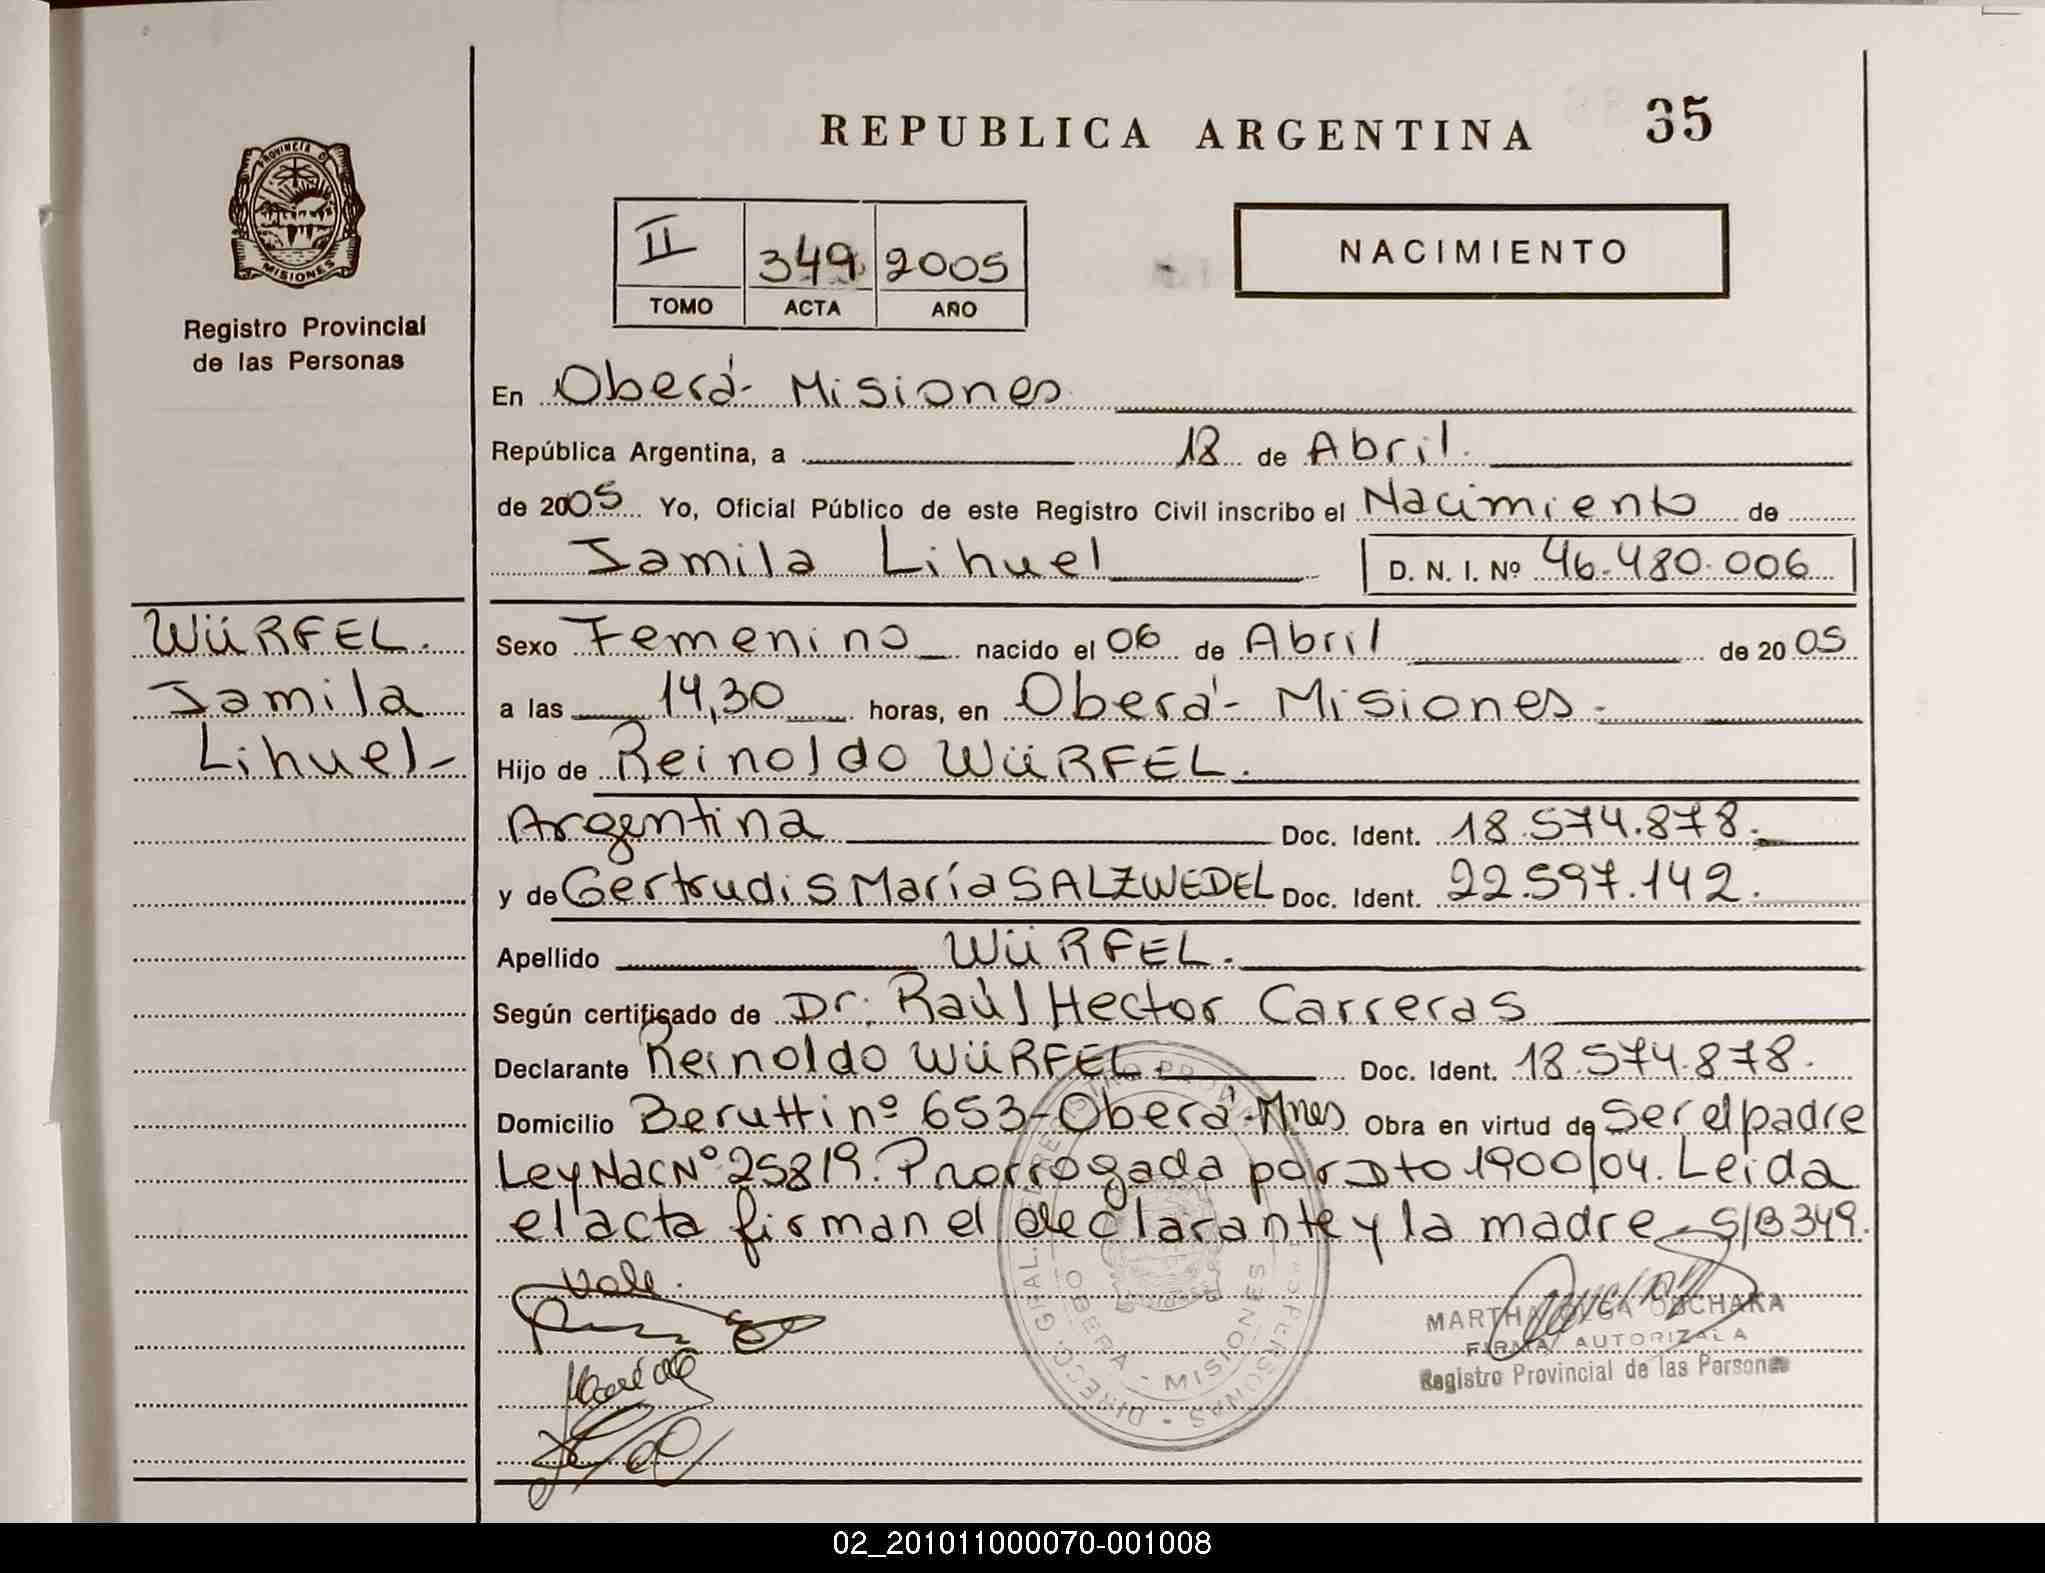 REPUBLICA ARGENTINA 35
PROVINCIA D
MISIONES
Registro Provincial
de las Personas
II 349 2005
TOMO ACTA AÑO
NACIMIENTO
En Oberá- Misiones
República Argentina, a 18 de Abril.
de 2005 Yo, Oficial Público de este Registro Civil inscribo el Nacimiento de
Jamila Lihuel D. N. I. Nº 46.480.006
WÜRFEL.
Jamila
Lihuel-
Sexo Femenino nacido el 06 de Abril de 2005
a las 14,30 horas, en Oberá- Misiones-
Hijo de Reinoldo WÜRFEL.
Argentina Doc. Ident. 18.574.878.
y de Gertrudis María SALZWEDEL Doc. Ident. 22.597.142.
Apellido WÜRFEL.
Según certificado de Dr. Raúl Hector Carreras
Declarante Reinoldo WÜRFEL Doc. Ident. 18.574.878.
Domicilio Berutti nº 653-Oberá-Mnes Obra en virtud de Ser el padre
Ley Nac Nº 25819. Prorrogada por Dto 1900/04. Leida
el acta firman el declarante y la madre - S/B 349.
Vale.
OBERA - MISIONES
MARTHA OLGA
FIRMA AUTORIZADA
Registro Provincial de las Personas
02_201011000070-001008